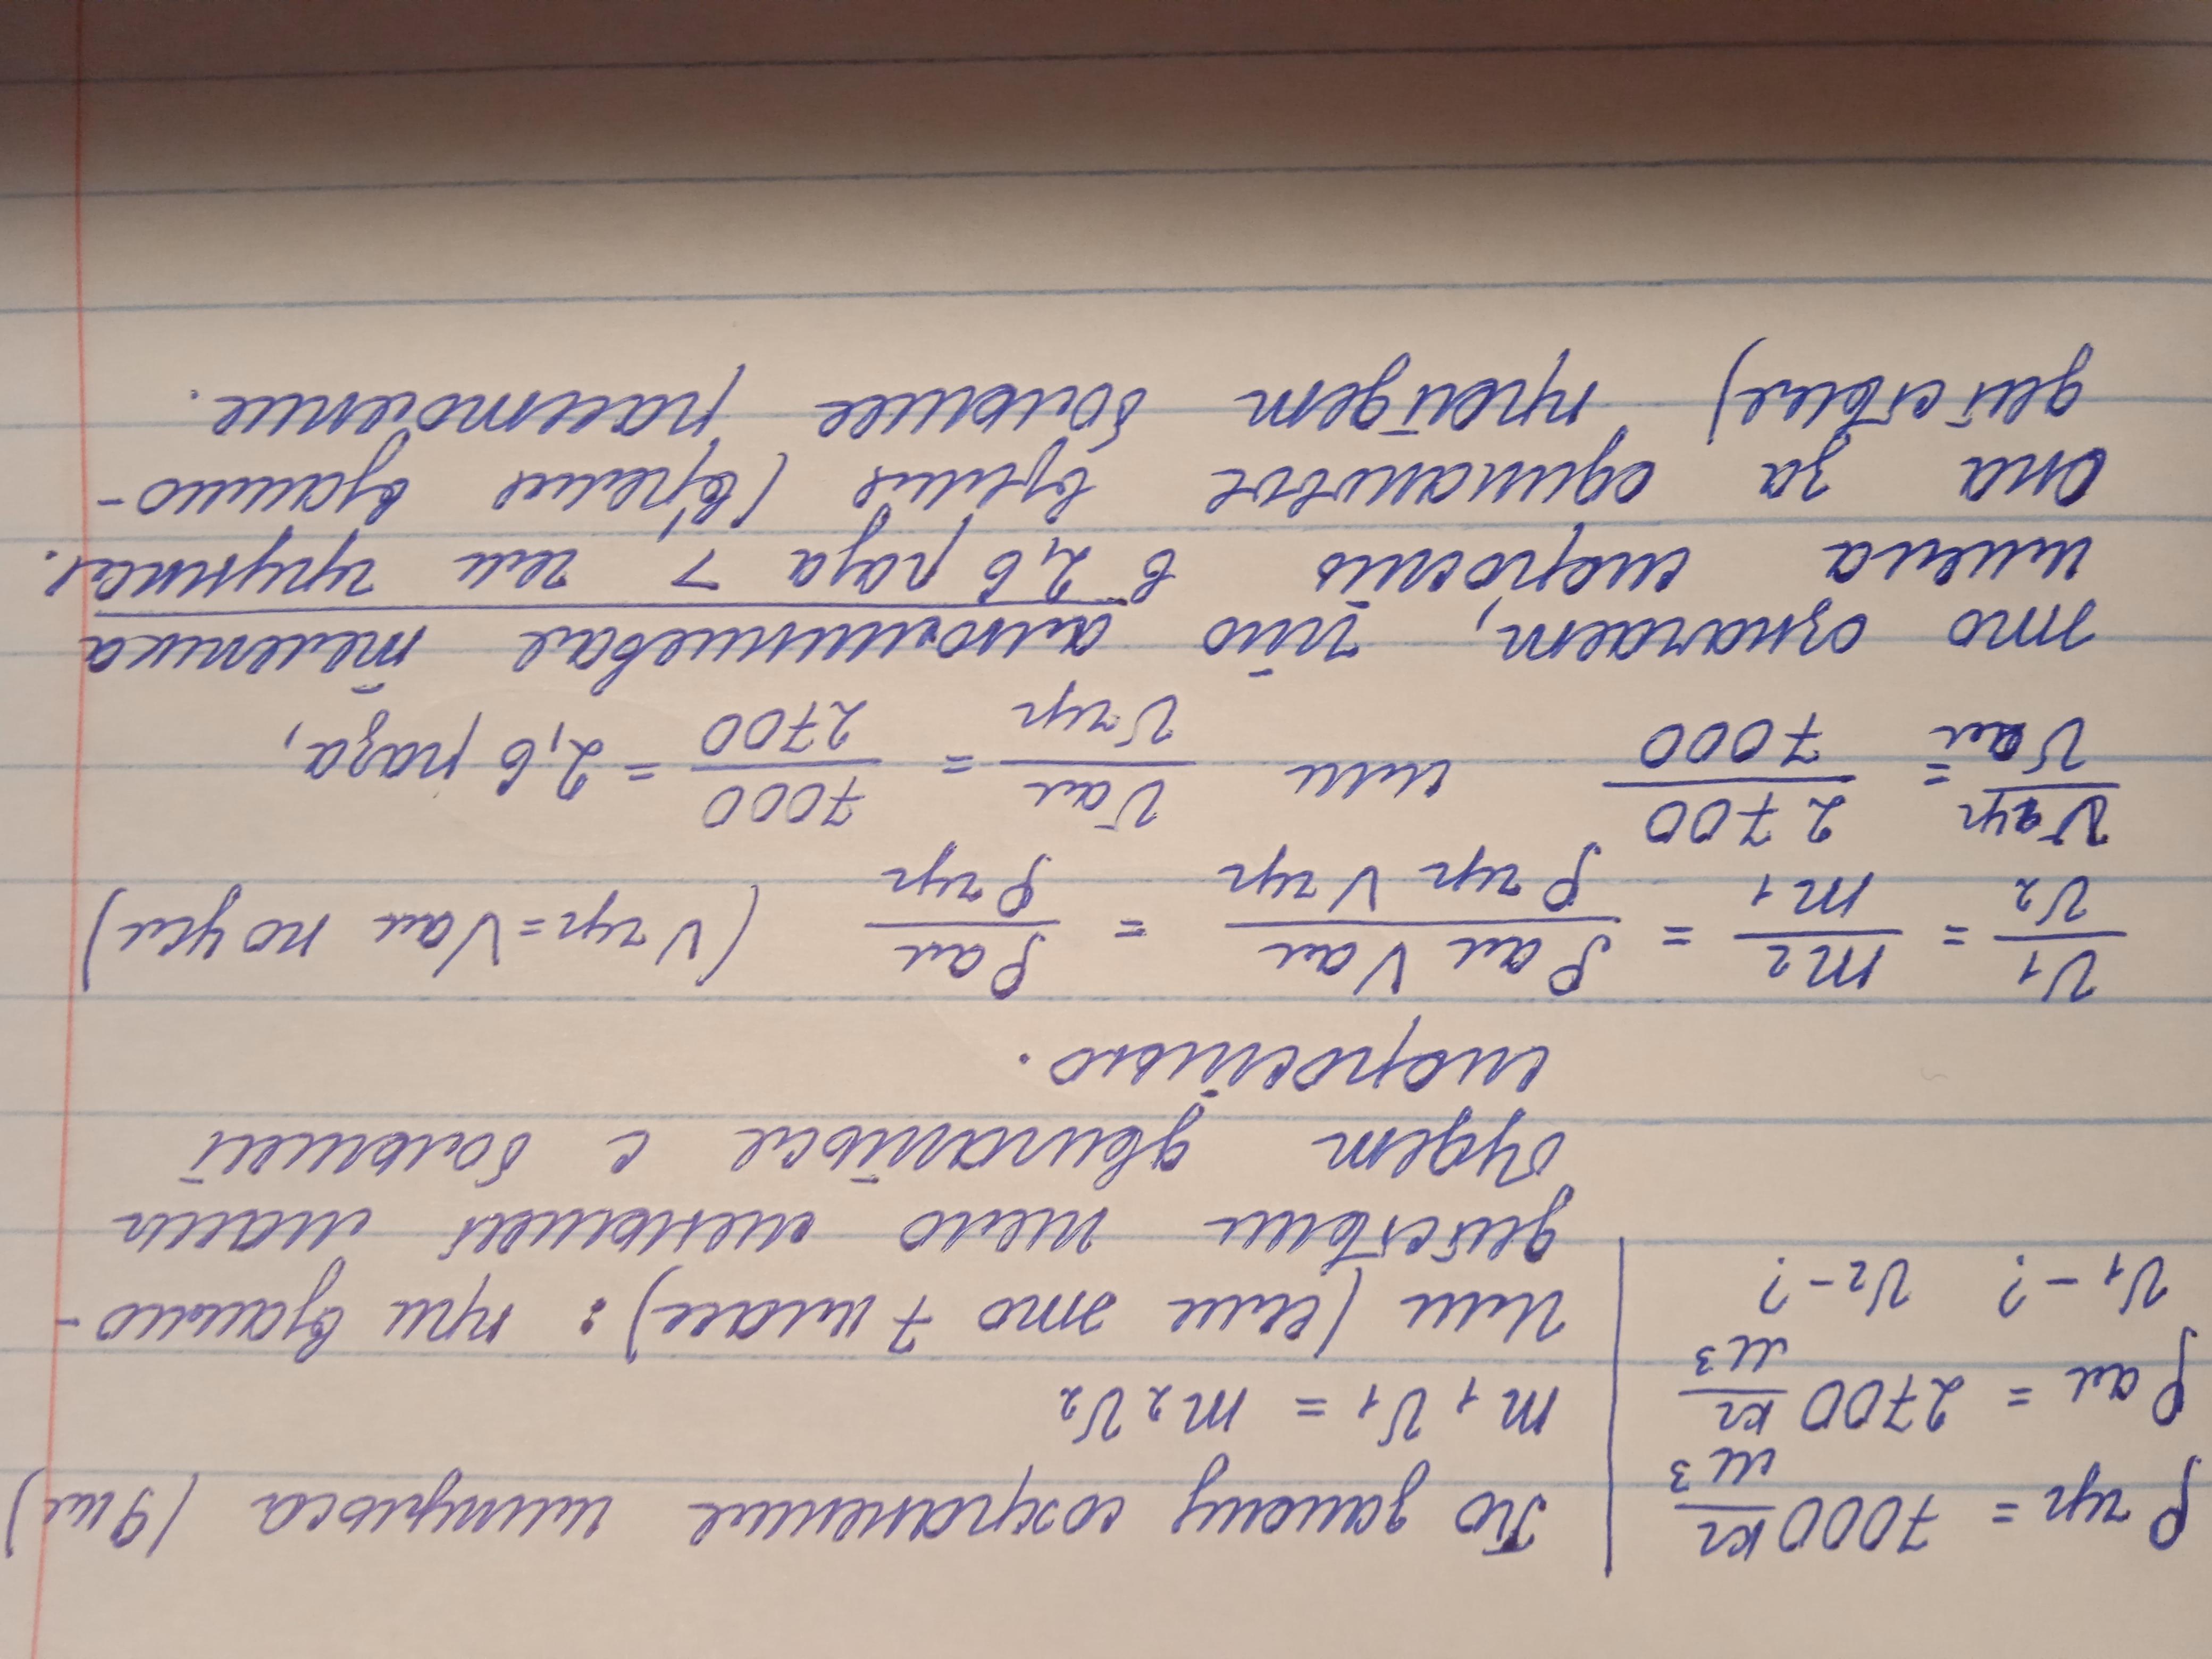 ρ чуг = 7000 кг/м³
ρ ал = 2700 кг/м³
υ₁ - ? υ₂ - ?
По закону сохранение импульса (9 кл)
m₁υ₁ = m₂υ₂
Или (если это 7 класс): при взаимо-
действии тело меньшей массы
будет двигаться с большей
скоростью.
υ₁/υ₂ = m₂/m₁ = ρ ал V ал/ρ чуг V чуг = ρ ал/ρ чуг (V чуг = V ал по усл)
υ чуг/υ ал = 2700/7000 или υ ал/υ чуг = 7000/2700 = 2,6 раза,
это означает, что алюминиевая тележка
имела скорость в 2,6 раза > чем чугунная.
Она за одинаковое время (время взаимо-
действие) пройдет большее расстояние.